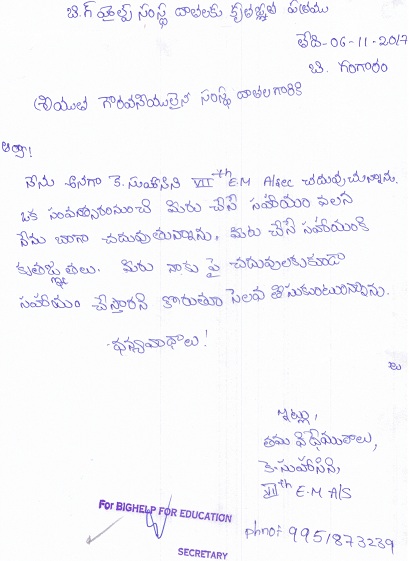 బి.గ్ హెల్ప్ సంస్థ దాతలకు కృతజ్ఞత పత్రము
తేది-06-11-2017
బి. గంగారం
శ్రీయుత గౌరవనీయులైన సంస్థ దాతల గారికి
ఆర్యా!
నేను అనగా కె. సుహాసిని VII th E.M A/sec చదువుచున్నాను.
ఒక సంవత్సరంనుంచి మీరు చేసే సహాయం వలన
నేను బాగా చదువుతున్నాను, మీరు చేసే సహాయంకి
కృతజ్ఞతలు. మీరు నాకు పై చదువులకుకుడా
సహాయం చేస్తారని కోరుతూ సెలవు తీసుకుంటున్నాను.
ధన్యావాదాలు!
ఇట్లు,
తమ విధేయురాలు,
కె.సుహాసిని,
VII th E.M A/S
phno: 9951873239
For BIGHELP FOR EDUCATION
SECRETARY